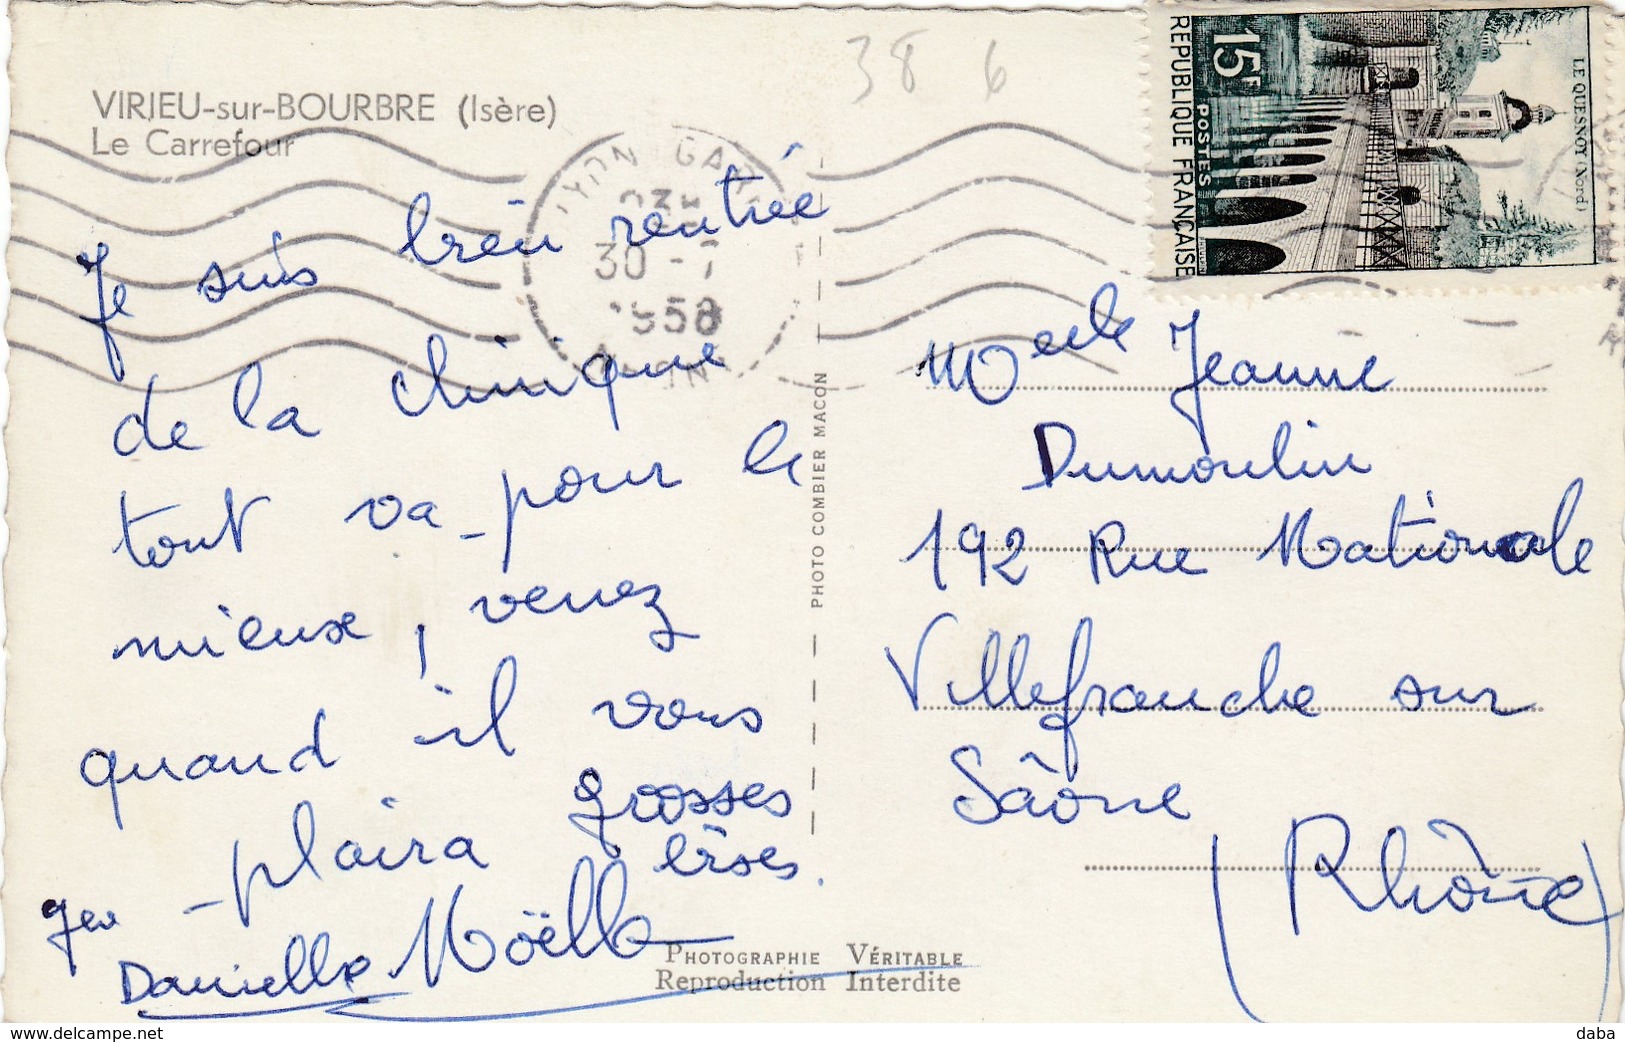 38 6
VIRIEU-sur-BOURBRE (Isère)
Le Carrefour
LYON GARE
30 - 7
1958
15F
POSTES
REPUBLIQUE FRANÇAISE
LE QUESNOY (Nord)
Je suis bien rentrée
de la clinique
tout va pour le
mieux, venez
quand il vous
plaira grosses
bises.
Danielle Noëlle
PHOTO COMBIER MACON
Melle Jeanne
Dumoulin
192 Rue Nationale
Villefranche sur
Saône
(Rhône)
PHOTOGRAPHIE VÉRITABLE
Reproduction Interdite
www.delcampe.net
daba